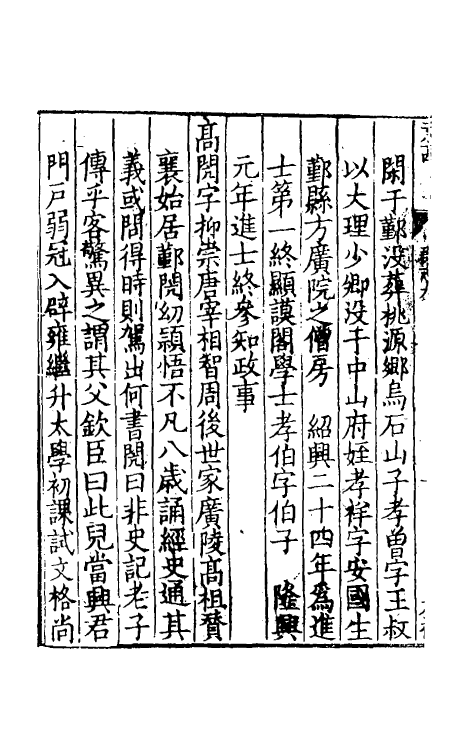 閑于鄞没葬桃源鄉烏石山子孝曾字王叔
以大理少卿没于中山府姪孝祥字安國生
鄞縣方廣院之僧房　紹興二十四年爲進
士第一終顯謨閣學士孝伯字伯子　隆興
元年進士終參知政事
高閌字抑崇唐宰相智周後世家廣陵高祖贇
襄始居鄞閌幼穎悟不凡八歳誦經史通其
義或問得時則駕出何書閌曰非史記老子
傳乎客驚異之謂其父欽臣曰此兒當興君
門戸弱冠入辟雍繼升太學初課試文格尚